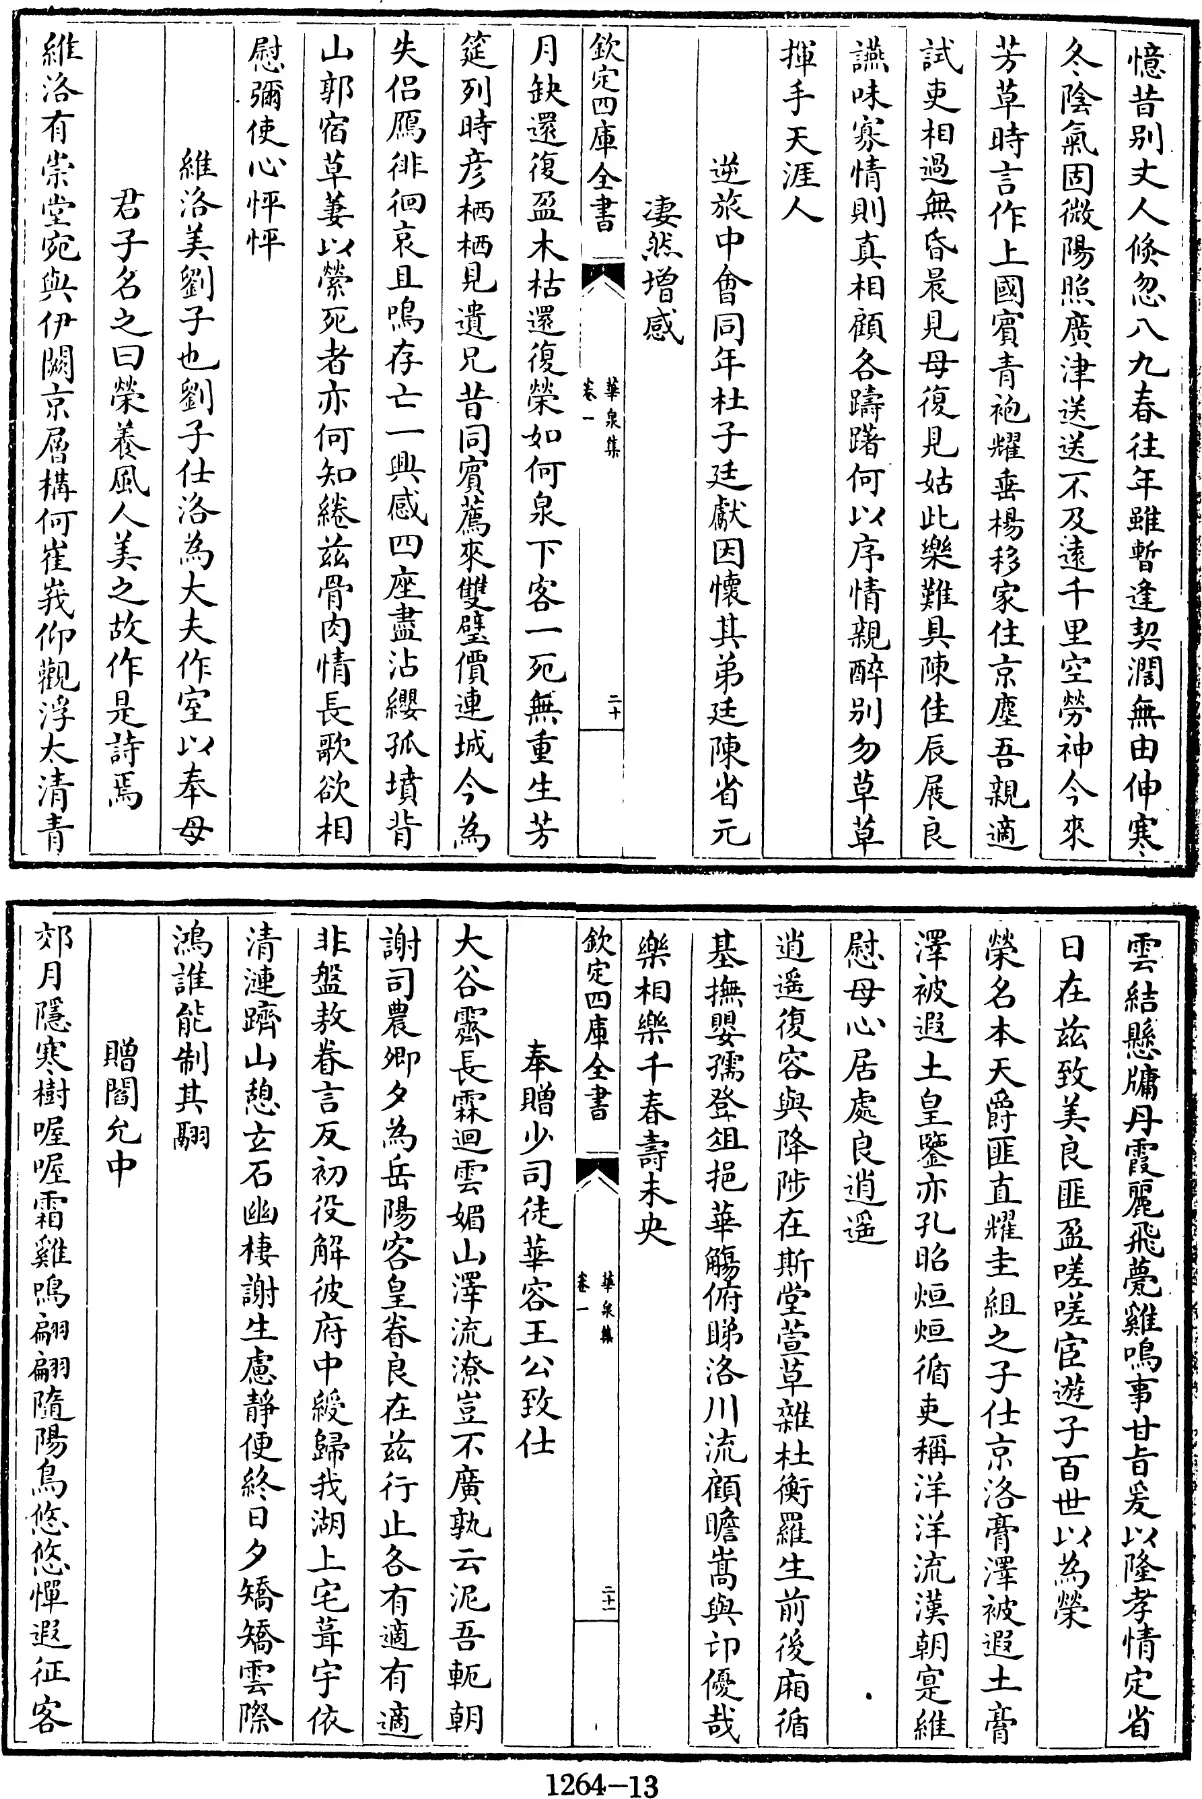 憶昔別丈人倏忽八九春往年雖暫逢契濶無由伸寒
冬陰氣固微陽照廣津送送不及遠千里空勞神今來
芳草時言作上國賓青袍耀垂楊移家住京塵吾親適
試吏相過無昏晨見母復見姑此樂難具陳佳辰展良
讌味寡情則真相顧各躊躇何以序情親醉別勿草草
揮手天涯人
逆旅中會同年杜子廷獻因懷其弟廷陳省元
凄然增感
欽定四庫全書
華泉集
卷一
二十
月缺還復盈木枯還復榮如何泉下客一死無重生芳
筵列時彦栖栖見遺兄昔同賓薦來雙璧價連城今為
失侶鴈徘徊哀且鳴存亡一興感四座盡沾纓孤墳背
山郭宿草萋以縈死者亦何知綣兹骨肉情長歌欲相
慰彌使心怦怦
維洛美劉子也劉子仕洛為大夫作室以奉母
君子名之曰榮養風人美之故作是詩焉
維洛有崇堂宛與伊闕京層構何崔峩仰觀浮太清青
雲結懸牖丹霞麗飛甍雞鳴事甘旨爰以隆孝情定省
日在兹致美良匪盈嗟嗟宦遊子百世以為榮
榮名本天爵匪直耀圭組之子仕京洛膏澤被遐土膏
澤被遐土皇鑒亦孔昭烜烜循吏稱洋洋流漢朝寔維
慰母心居處良逍遥
逍遥復容與降陟在斯堂萱草雜杜衡羅生前後廂循
基撫嬰孺登俎挹華觴俯睇洛川流顧瞻嵩與邙優哉
樂相樂千春壽未央
欽定四庫全書
華泉集
卷一
二十一
奉贈少司徒華容王公致仕
大谷霽長霖迴雲媚山澤流潦豈不廣孰云泥吾軛朝
謝司農卿夕為岳陽客皇眷良在兹行止各有適有適
非盤敖眷言反初役解彼府中綬歸我湖上宅葺宇依
清漣躋山憩玄石幽棲謝生慮靜便終日夕矯矯雲際
鴻誰能制其翮
贈閻允中
郊月隱寒樹喔喔霜雞鳴翩翩隨陽鳥悠悠憚遐征客
1264-13